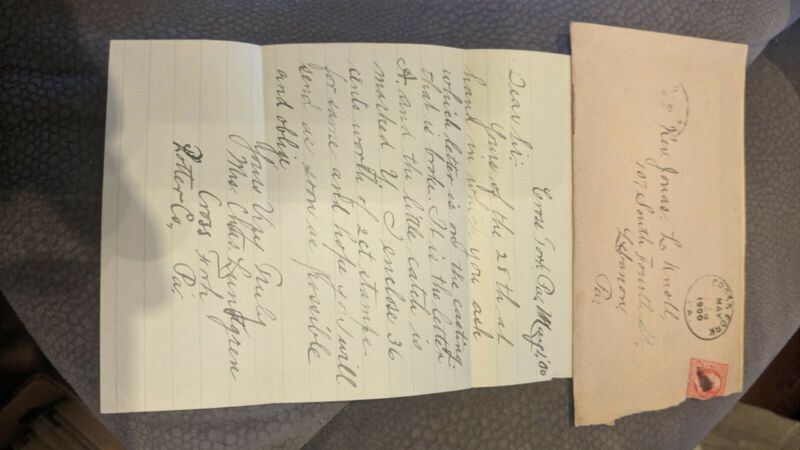 Cross Fork, Pa, May 1, 00
Dear Sir:-
Yours of the 28th at
hand in which you ask
which letter is on the casting
that is broke. It is the letter
A. and the little catch is
marked Y. I enclose 36
cents worth of 2 ct. stamps
for same and hope you will
send as soon as possible
and oblige
Yours Very Truly
Mrs. Chas. Lundgren
Cross Fork
Potter Co, Pa.
Rev Jonas L Knoll
107 South Fourth St.
Lebanon,
Pa.
CROSS FORK
MAY
1900
PA.